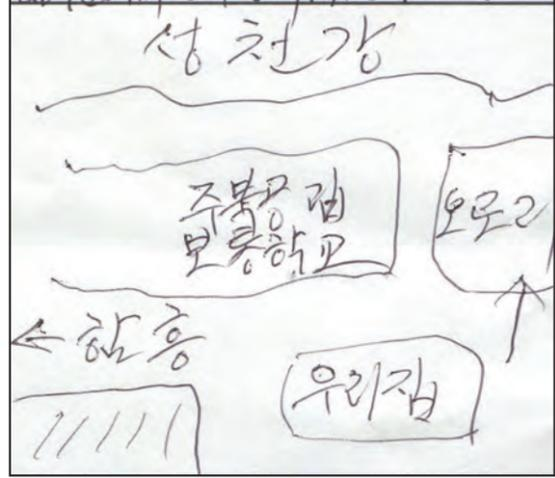 성천강
주북공립
보통학교
오로리
← 함흥
우리집